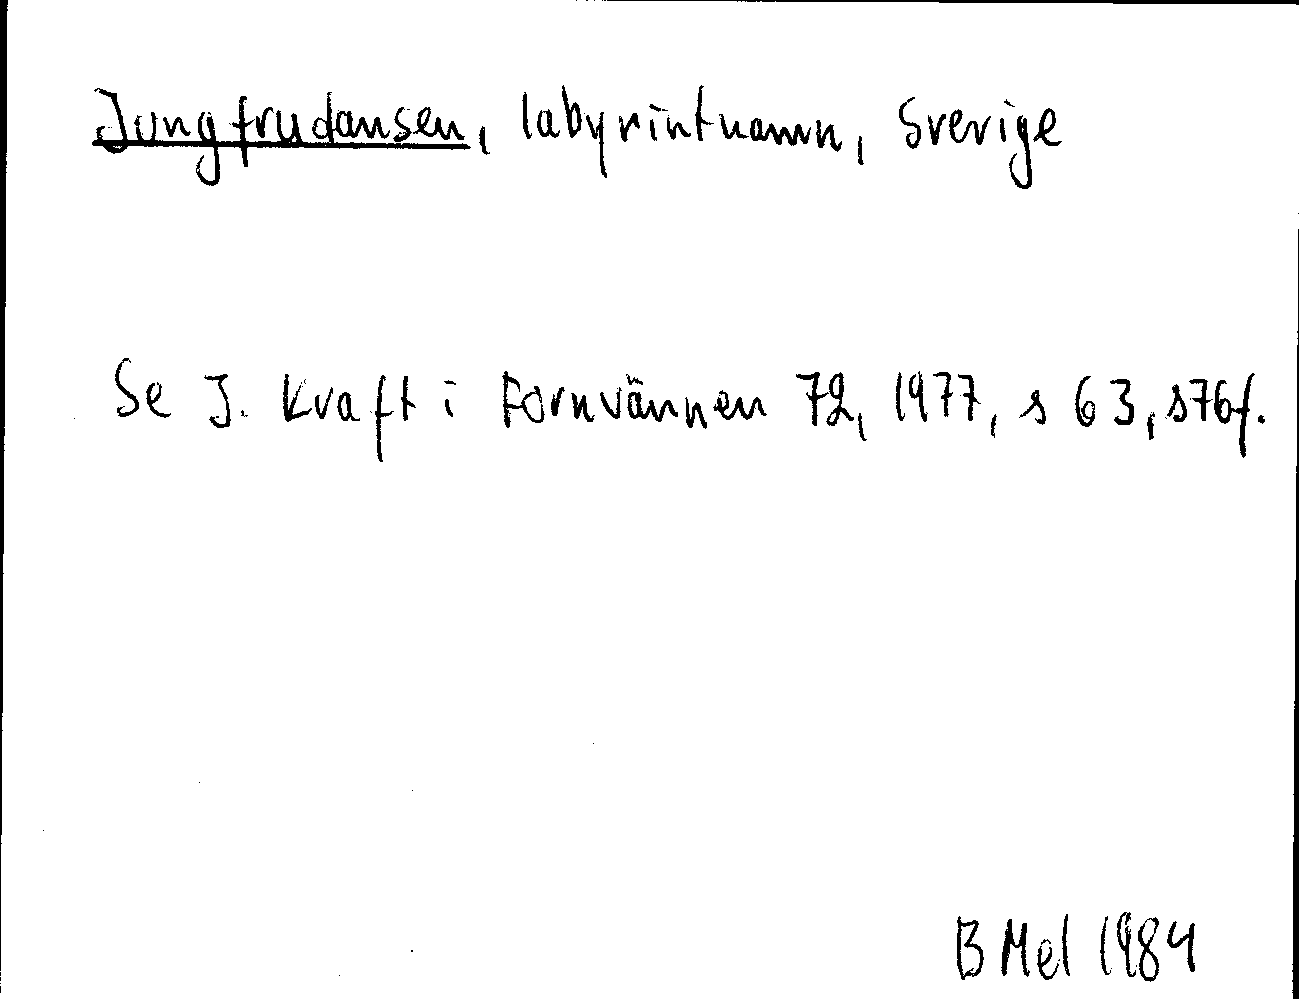 Jungfrudansen, labyrintnamn, Sverige
Se J. Kraft i Fornvännen 72, 1977, s 63, s76f.
B Mel 1984